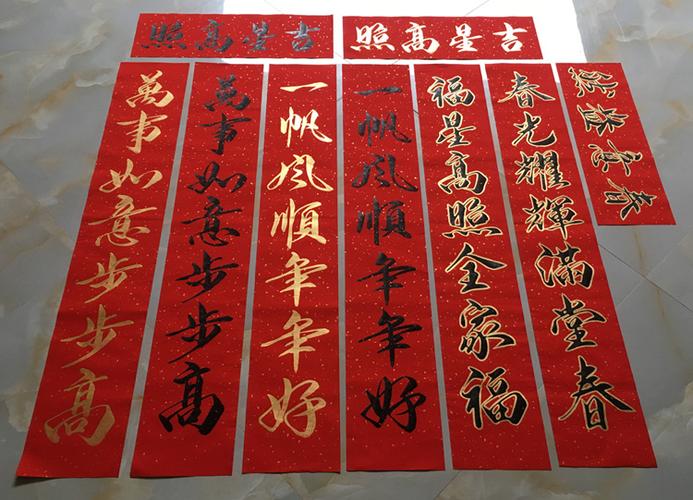 吉星高照
吉星高照
春意盎然
春光耀輝滿堂春
福星高照全家福
一帆風順年年好
一帆風順年年好
萬事如意步步高
萬事如意步步高